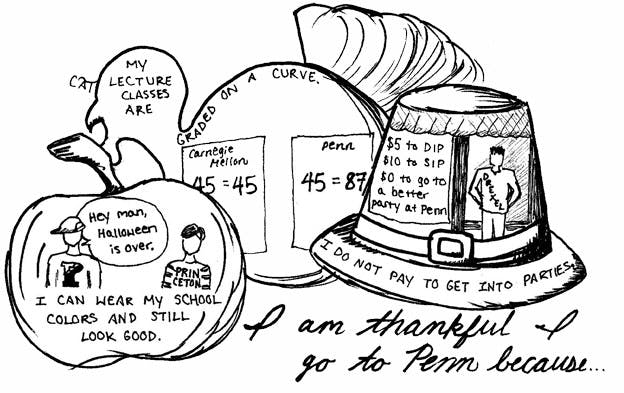 MY
LECTURE
CLASSES
ARE
GRADED ON A CURVE.
Carnegie
Mellon
45 = 45
Penn
45 = 87
$5 to DIP
$10 to SIP
$0 to go to
a better
party at Penn
DREXEL
I DO NOT PAY TO GET INTO PARTIES.
Hey man,
Halloween
is over.
P
PRIN
CETON
I CAN WEAR MY SCHOOL
COLORS AND STILL
LOOK GOOD.
I am thankful I
go to Penn because...